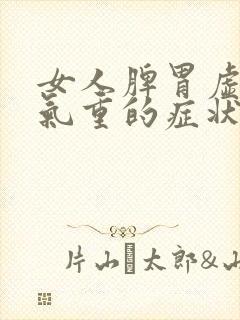 女人脾胃虛
氣重的症狀
片山太郎&山